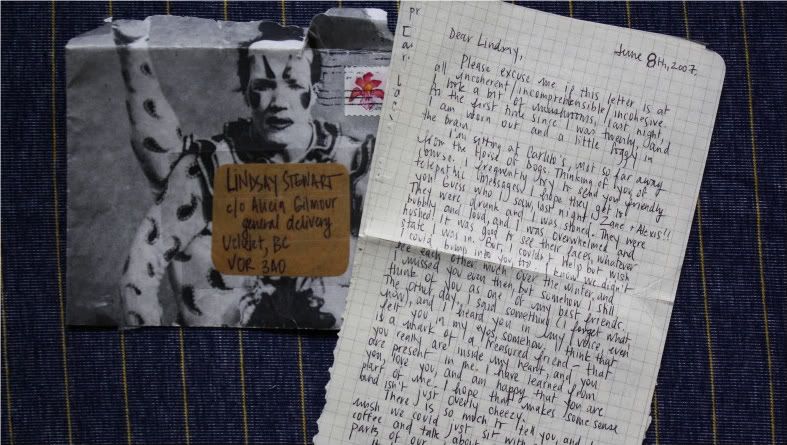 LINDSAY STEWART
c/o Alicia Gilmour
general delivery
Ucluelet, BC
V0R 3A0
June 8th, 2007.
Dear Lindsay,
Please excuse me if this letter is at
all incoherent/incomprehensible/incohesive.
I took a bit of last night,
for the first time since I was twenty, and
I am worn out and a little foggy in
the brain.
I'm sitting at Carlito's, not so far away
from the House of Dogs. Thinking of you, of
course. I frequently try to send you friendly
telepathic messages, I hope they get to
you! Guess who I saw last night - Zane + Alexis!!
They were drunk and I was stoned. They were
bubbly and loud, and I was overwhelmed and
hushed. It was good to see their faces, whatever
state I was in. But, I couldn't help but wish
I could bump into you, too. I know we didn't
see each other much over the winter, and
I missed you even then, but somehow I still
think of you as one of my best friends.
The other day, I said something (I forget what
now), and I heard you in my voice, even
felt you in my eyes, somehow. I think that
is a mark of a treasured friend - that
you really are inside my heart, and you
are present in me. I have learned from
you, love you, and am happy that you are
part of me. I hope that makes some sense
and isn't just overly cheezy.
There is so much to tell you, and I
wish we could just sit with a
coffee and talk about
parts of our